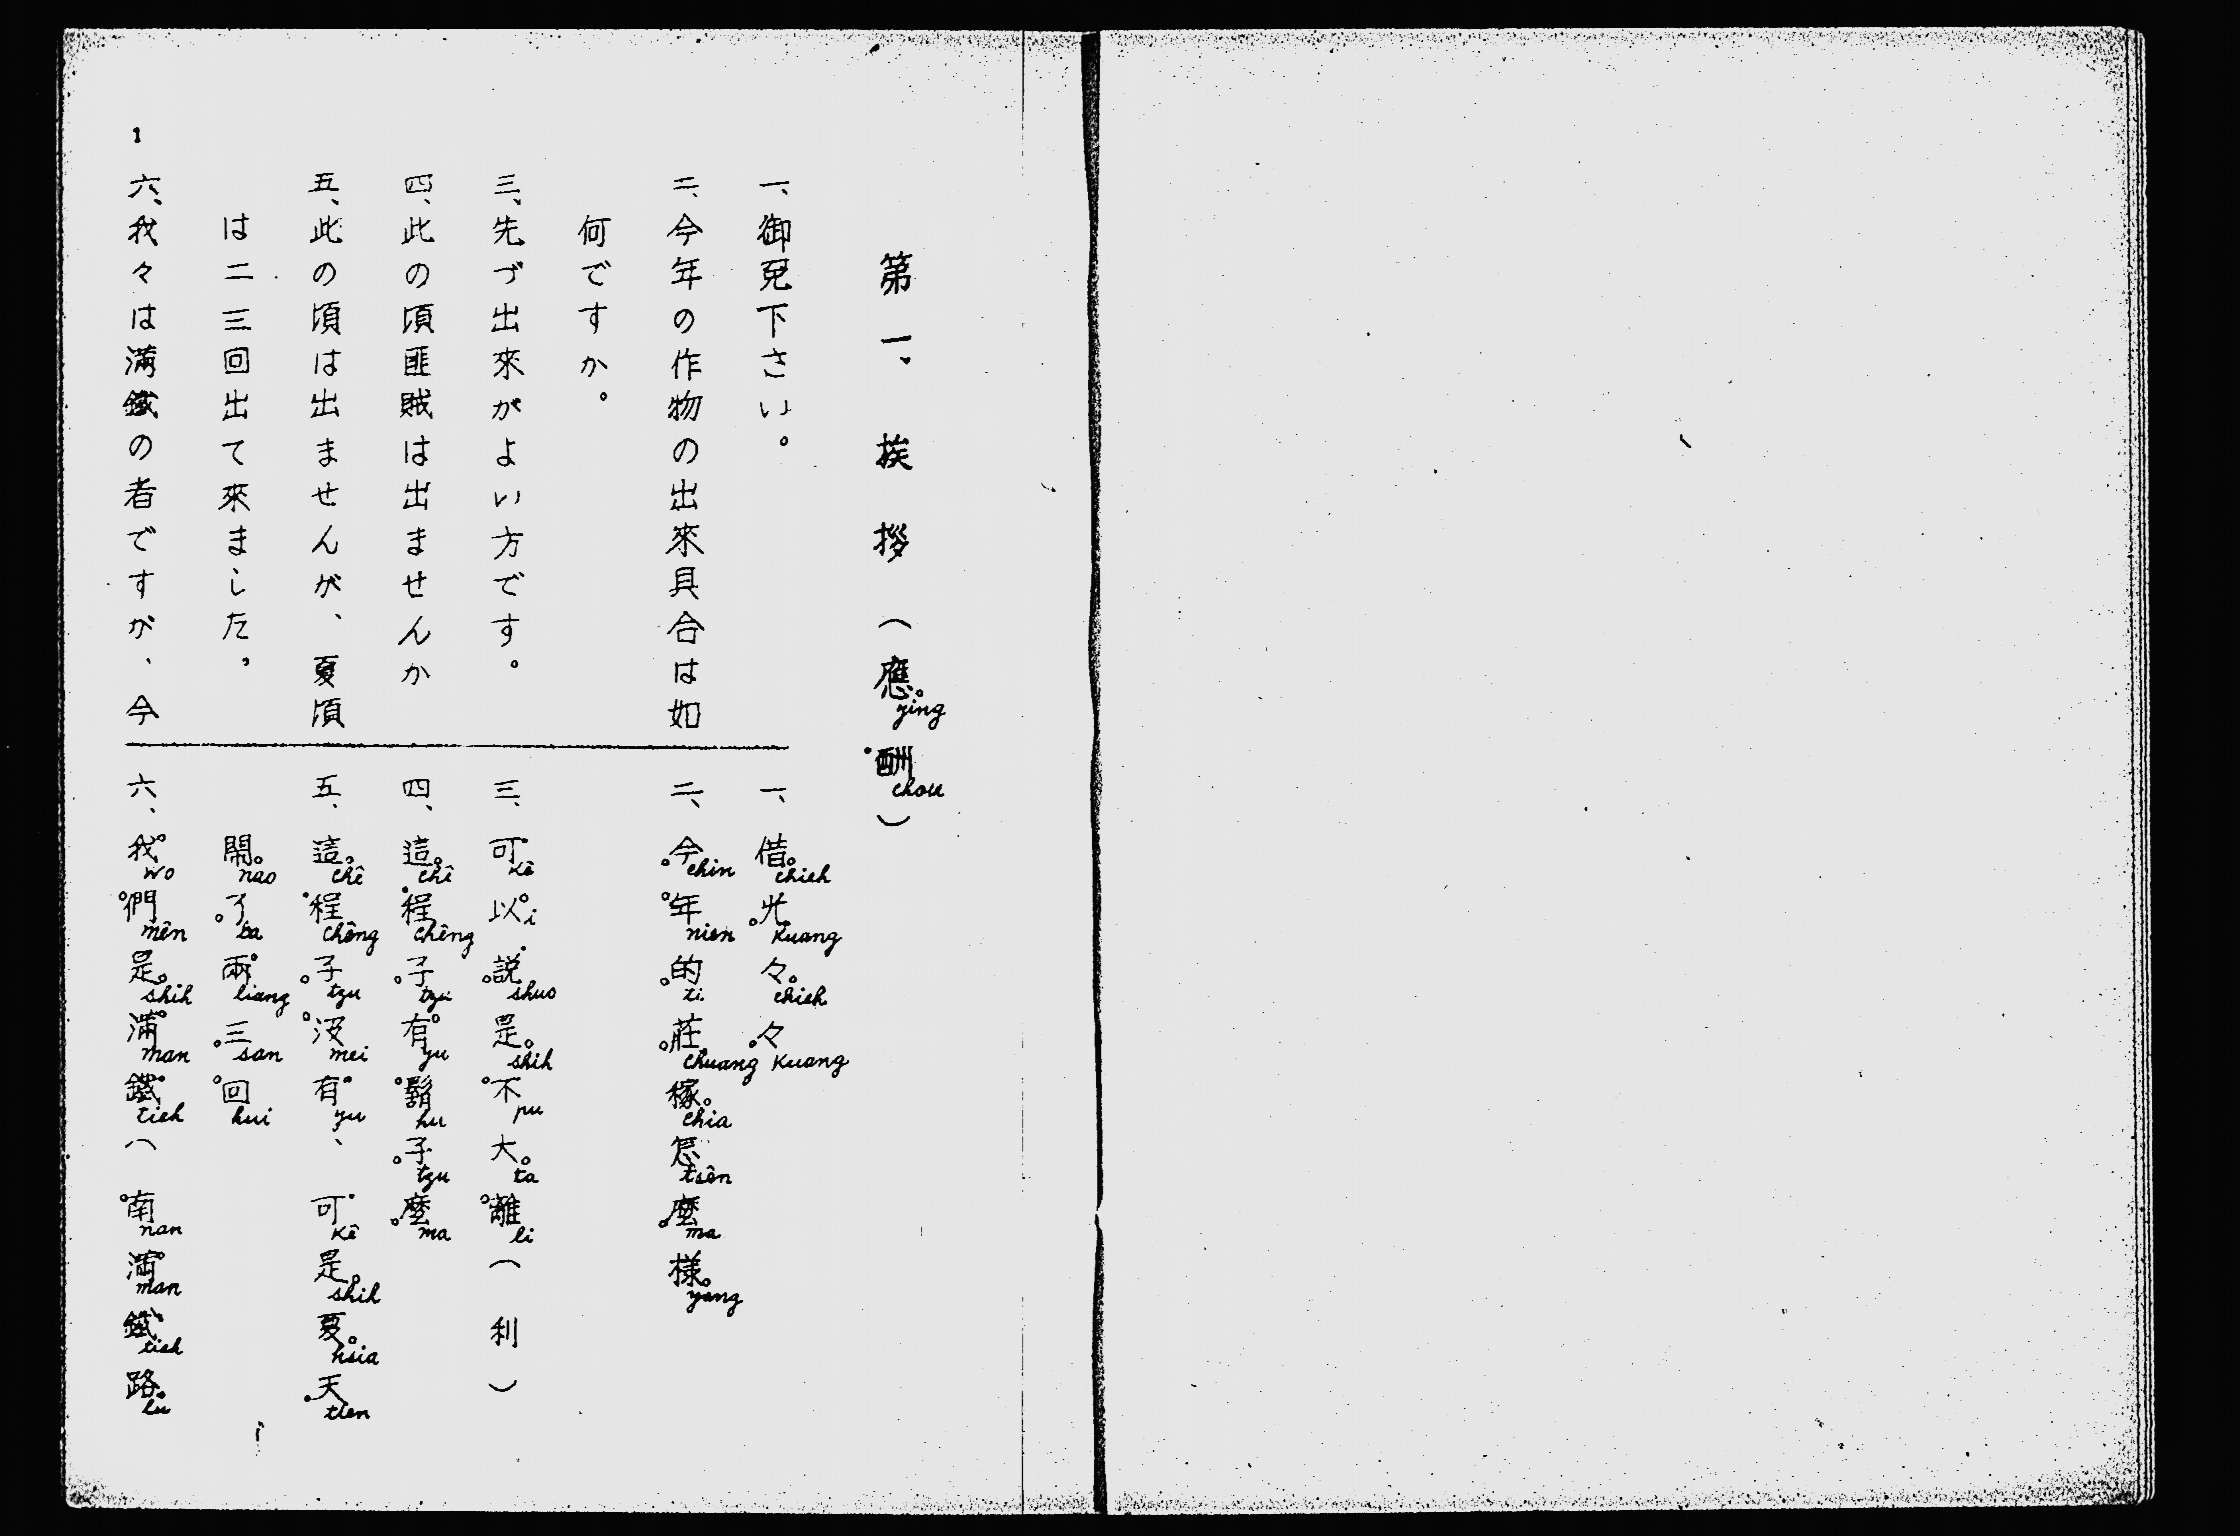 第一、挨拶（應ying酬chou）
一、御免下さい。
二、今年の作物の出來具合は如
何ですか。
三、先づ出來がよい方です。
四、此の頃匪賊は出ませんか
五、此の頃は出ませんが、夏頃
は二三回出て來ました。
六、我々は滿鐵の者ですが、今
一、借chieh光kuang々chieh々kuang
二、今chin年nien的ti莊chuang稼chia怎tsên麼ma様yang
三、可kê以i説shuo是shih不pu大ta離li（利）
四、這chê程chêng子tzu有yu鬍hu子tzu麼ma
五、這chê程chêng子tzu沒mei有yu、可kê是shih夏hsia天tien
鬧nao了la兩liang三san回hui
六、我wo們mên是shih滿man鐵tieh（南nan滿man鐵tieh路lu
1